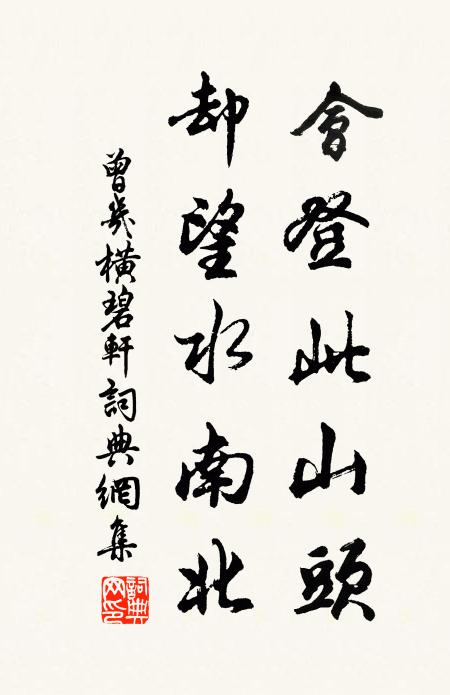 會登此山頭
却望水南北
曾幾橫碧軒詞典網集
詞典網印